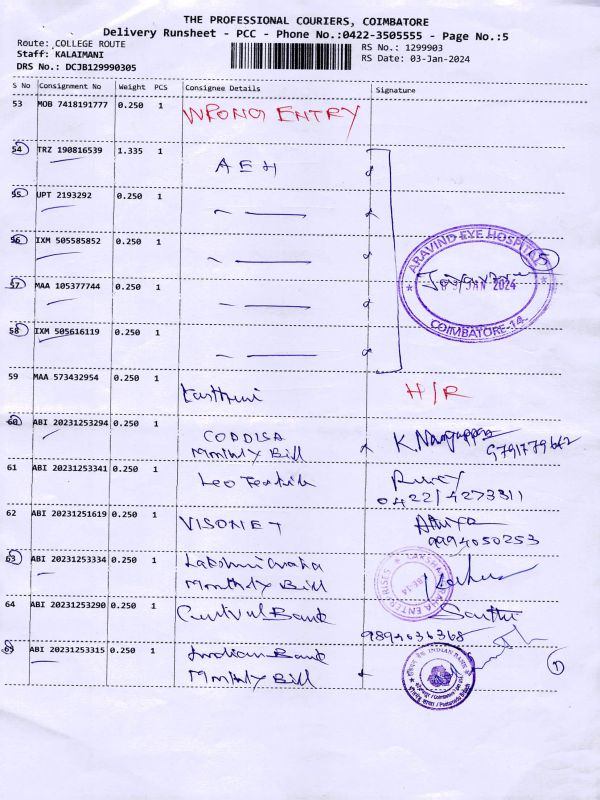 THE PROFESSIONAL COURIERS, COIMBATORE
Delivery Runsheet - PCC - Phone No.:0422-3505555 - Page No.:5
Route: COLLEGE ROUTE
Staff: KALAIMANI
DRS No.: DCJB129990305
RS No.: 1299903
RS Date: 03-Jan-2024
S No Consignment No Weight PCS Consignee Details Signature
53 MOB 7418191777 0.250 1 WRONG ENTRY
54 TRZ 190816539 1.335 1 AEH
55 UPT 2193292 0.250 1
56 IXM 505585852 0.250 1
57 MAA 105377744 0.250 1
58 IXM 505616119 0.250 1
ARAVIND EYE HOSPITAL
JAN 2024
COIMBATORE-14
5
59 MAA 573432954 0.250 1 Kasthuri H/R
60 ABI 20231253294 0.250 1 CODDISA
Monthly Bill
61 ABI 20231253341 0.250 1 Leo Textile
0422/4273311
62 ABI 20231251619 0.250 1 VISONET
9994050253
63 ABI 20231253334 0.250 1
Monthly Bill
64 ABI 20231253290 0.250 1 Central Bank
9894036368
65 ABI 20231253315 0.250 1 Indian Bank
Monthly Bill
INDIAN BANK
1